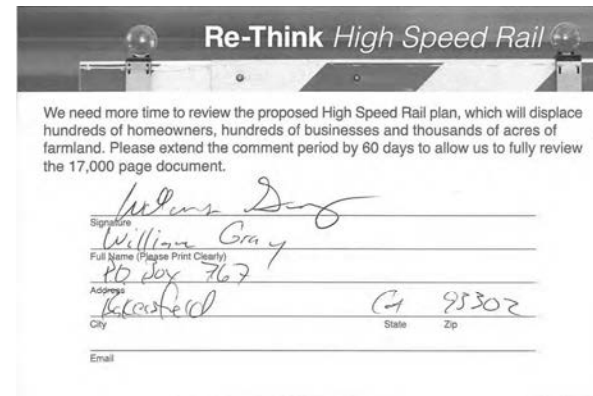 Re-Think High Speed Rail
We need more time to review the proposed High Speed Rail plan, which will displace
hundreds of homeowners, hundreds of businesses and thousands of acres of
farmland. Please extend the comment period by 60 days to allow us to fully review
the 17,000 page document.
Signature
William Gray
Full Name (Please Print Clearly)
PO Box 767
Address
Bakersfield CA 93302
City State Zip
Email